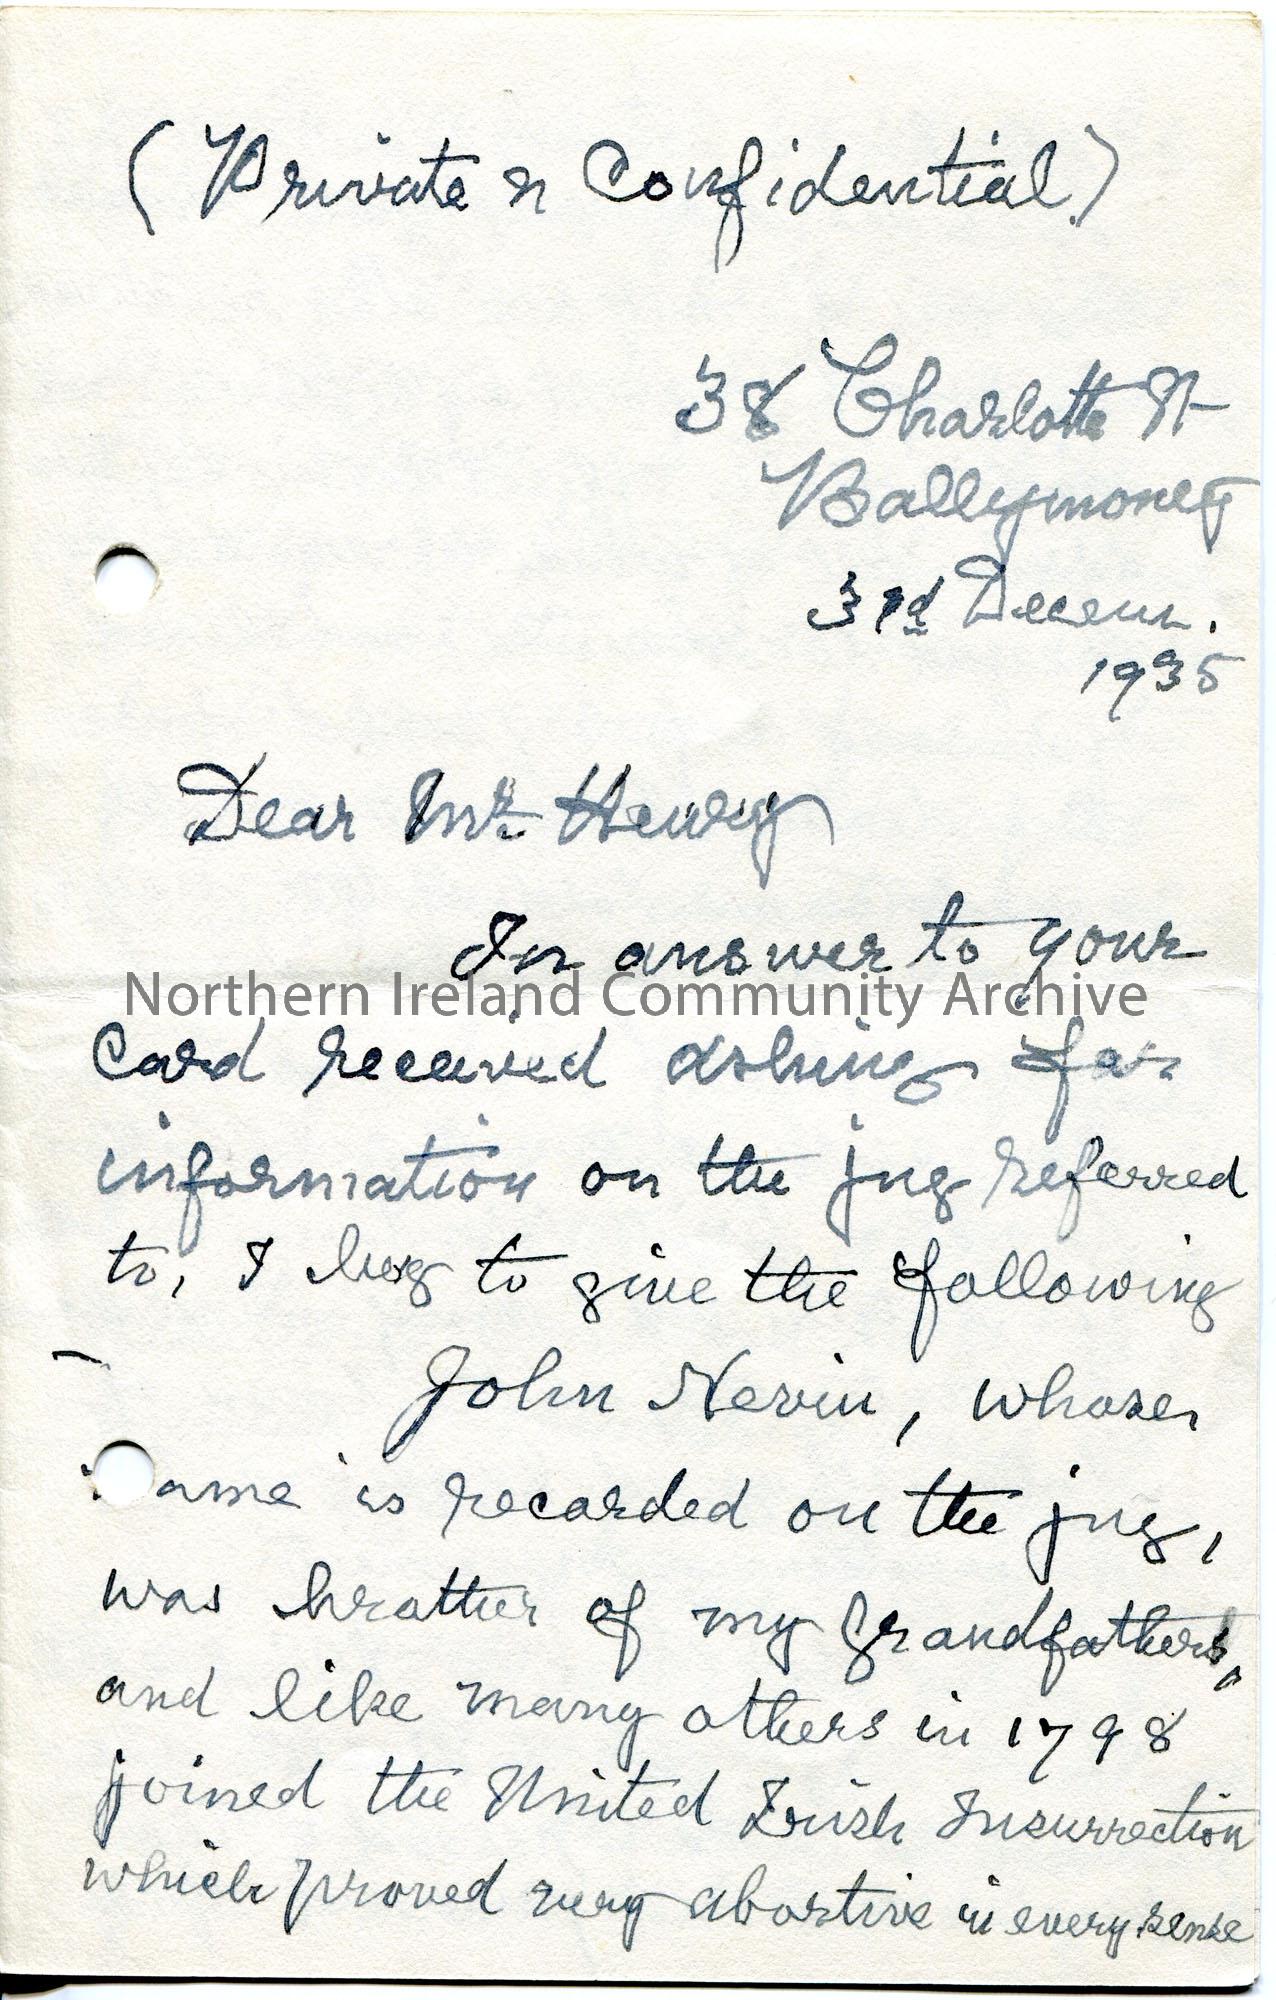 (Private & Confidential)
38 Charlotte St
Ballymoney
3rd Decem.
1935
Dear Mr Henry
In answer to your
Northern Ireland Community Archive
Card received asking for
information on the jug referred
to, I beg to give the following
John Nevin, whose
name is recorded on the jug,
was brother of my grandfathers,
and like many others in 1798
joined the United Irish Insurrection
which proved very abortive in every sense